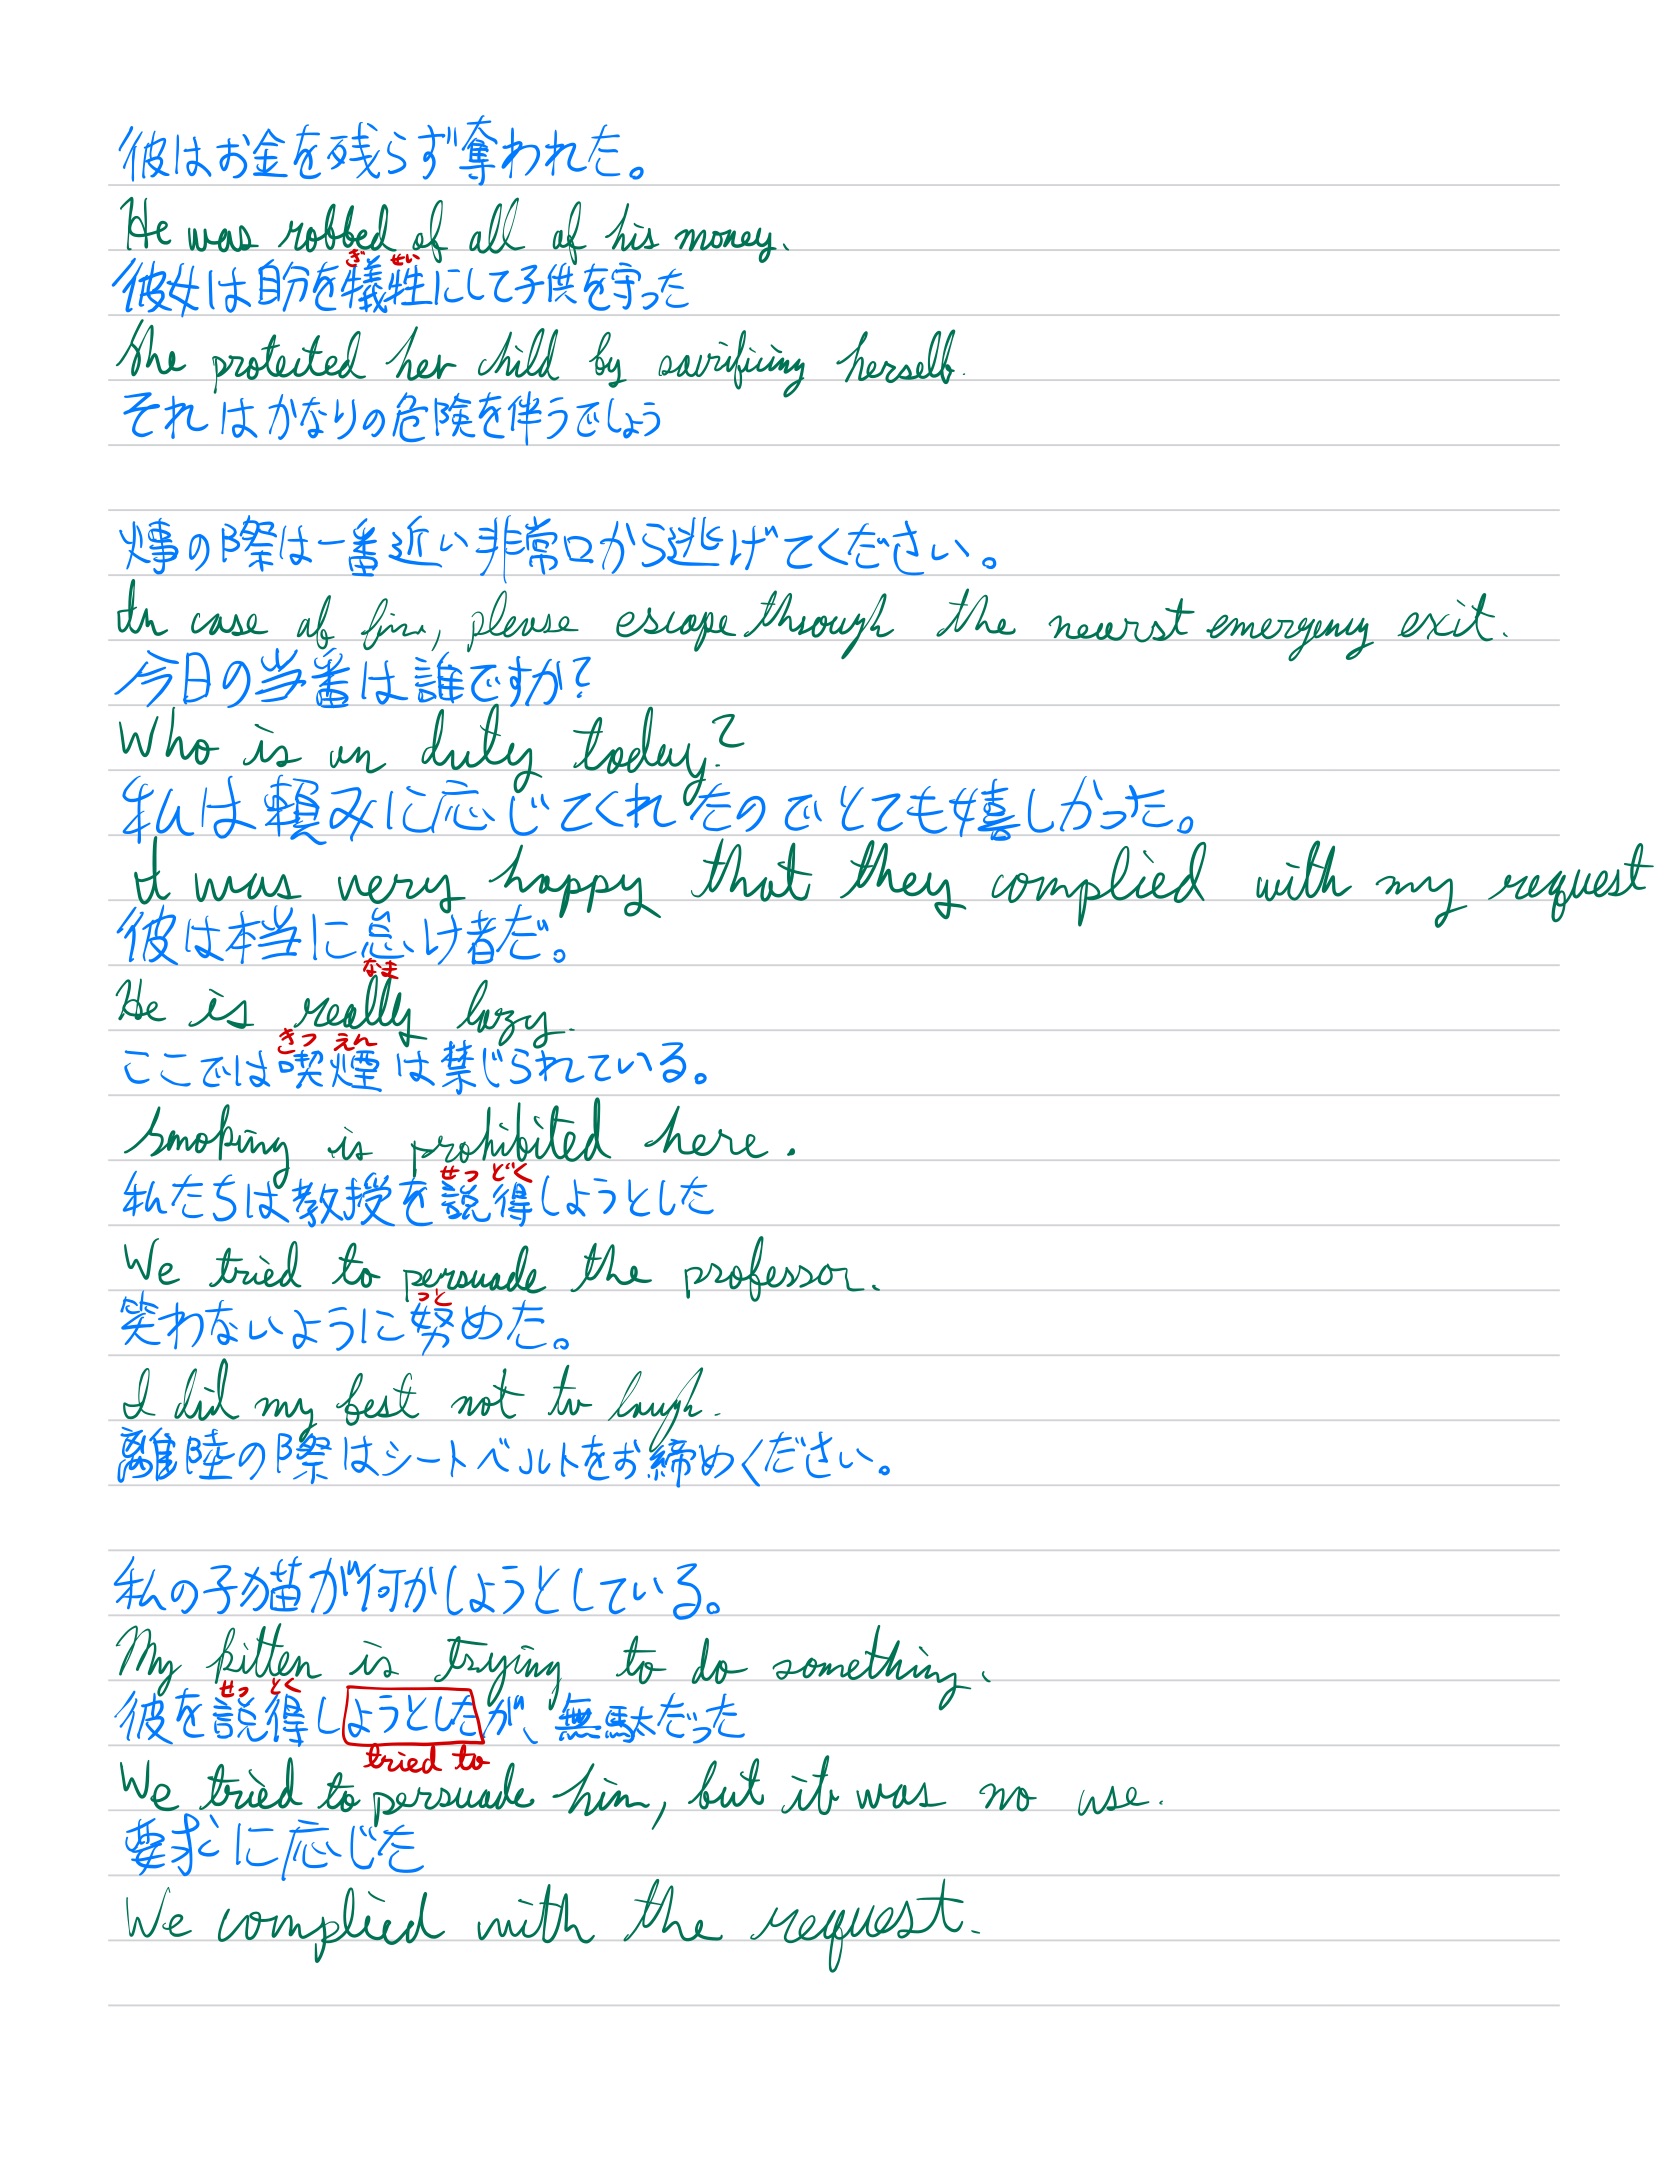 彼はお金を残らず奪われた。
He was robbed of all of his money.
ぎ せい
彼女は自分を犠牲にして子供を守った
She protected her child by sacrificing herself.
それはかなりの危険を伴うでしょう
火事の際は一番近い非常口から逃げてください。
In case of fire, please escape through the nearst emergency exit.
今日の当番は誰ですか?
Who is on duty today?
私は頼みに応じてくれたのでとても嬉しかった。
I was very happy that they complied with my request
彼は本当に怠け者だ。
なま
He is really lazy.
きつ えん
ここでは喫煙は禁じられている。
Smoking is prohibited here.
せつ どく
私たちは教授を説得しようとした
We tried to persuade the professor.
っと
笑わないように努めた。
I did my best not to laugh.
離陸の際はシートベルトをお締めください。
私の子猫が何かしようとしている。
My kitten is trying to do something.
せっ とく
彼を説得しようとしたが、無駄だった
tried to
We tried to persuade him, but it was no use.
要求に応じた
We complied with the request.